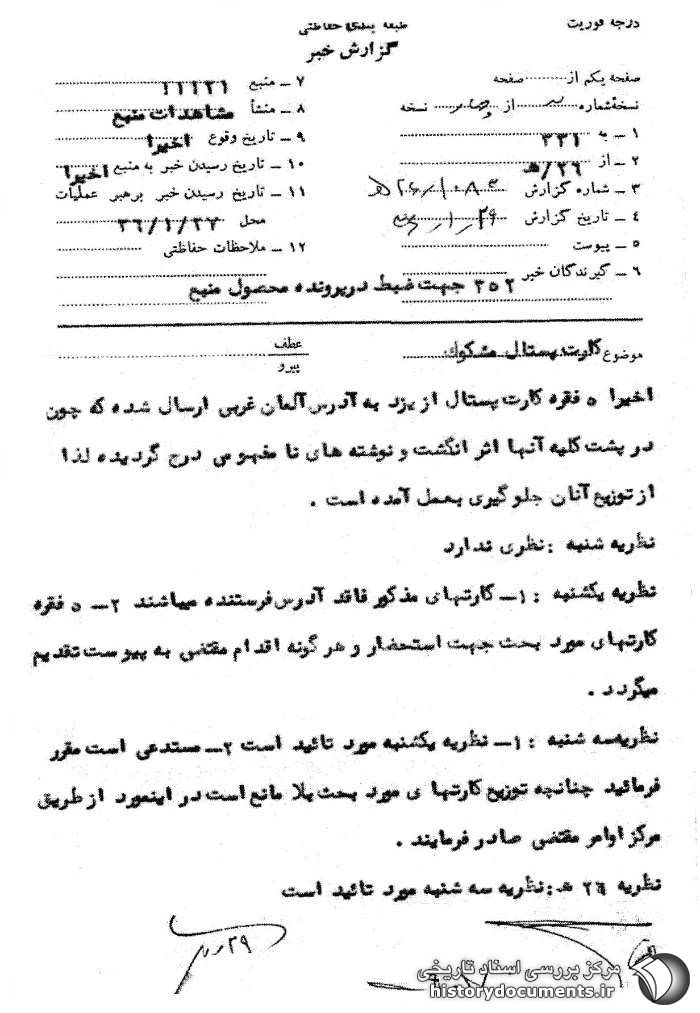 درجه فوریت
طبقه بندی حفاظتی
گزارش خبر
صفحه یکم از صفحه
نسخهٔ شماره از نسخه
۱ ــ به ۳۳۱
۲ ــ از ۲۶/ه‍
۳ ــ شماره گزارش
۴ ــ تاریخ گزارش
۵ ــ پیوست
۶ ــ گیرندگان خبر ۳۵۲ جهت ضبط در پرونده محصول منبع
۷ ــ منبع ۱۱۱۳۱
۸ ــ منشأ مشاهدات منبع
۹ ــ تاریخ وقوع اخیرا
۱۰ ــ تاریخ رسیدن خبر به منبع اخیرا
۱۱ ــ تاریخ رسیدن خبر برهبر عملیات
محل ۳۶/۱/۲۷
۱۲ ــ ملاحظات حفاظتی
موضوع کارت پستال مشکوک
عطف
پیرو
اخیرا ۵ فقره کارت پستال از یزد به آدرس آلمان غربی ارسال شده که چون
در پشت کلیه آنها اثر انگشت و نوشته های نا مفهومی درج گردیده لذا
از توزیع آنان جلوگیری بعمل آمده است .
نظریه شنبه : نظری ندارد
نظریه یکشنبه : ۱ــ کارتهای مذکور فاقد آدرس فرستنده میباشند ۲ــ ۵ فقره
کارتهای مورد بحث جهت استحضار و هر گونه اقدام مقتضی به پیوست تقدیم
میگردد .
نظریه سه شنبه : ۱ــ نظریه یکشنبه مورد تائید است ۲ــ مستدعی است مقرر
فرمائید چنانچه توزیع کارتها ی مورد بحث بلا مانع است در اینمورد از طریق
مرکز اوامر مقتضی صادر فرمایند .
نظریه ۲۶ ه‍ : نظریه سه شنبه مورد تائید است
مرکز بررسی اسناد تاریخی
historydocuments.ir